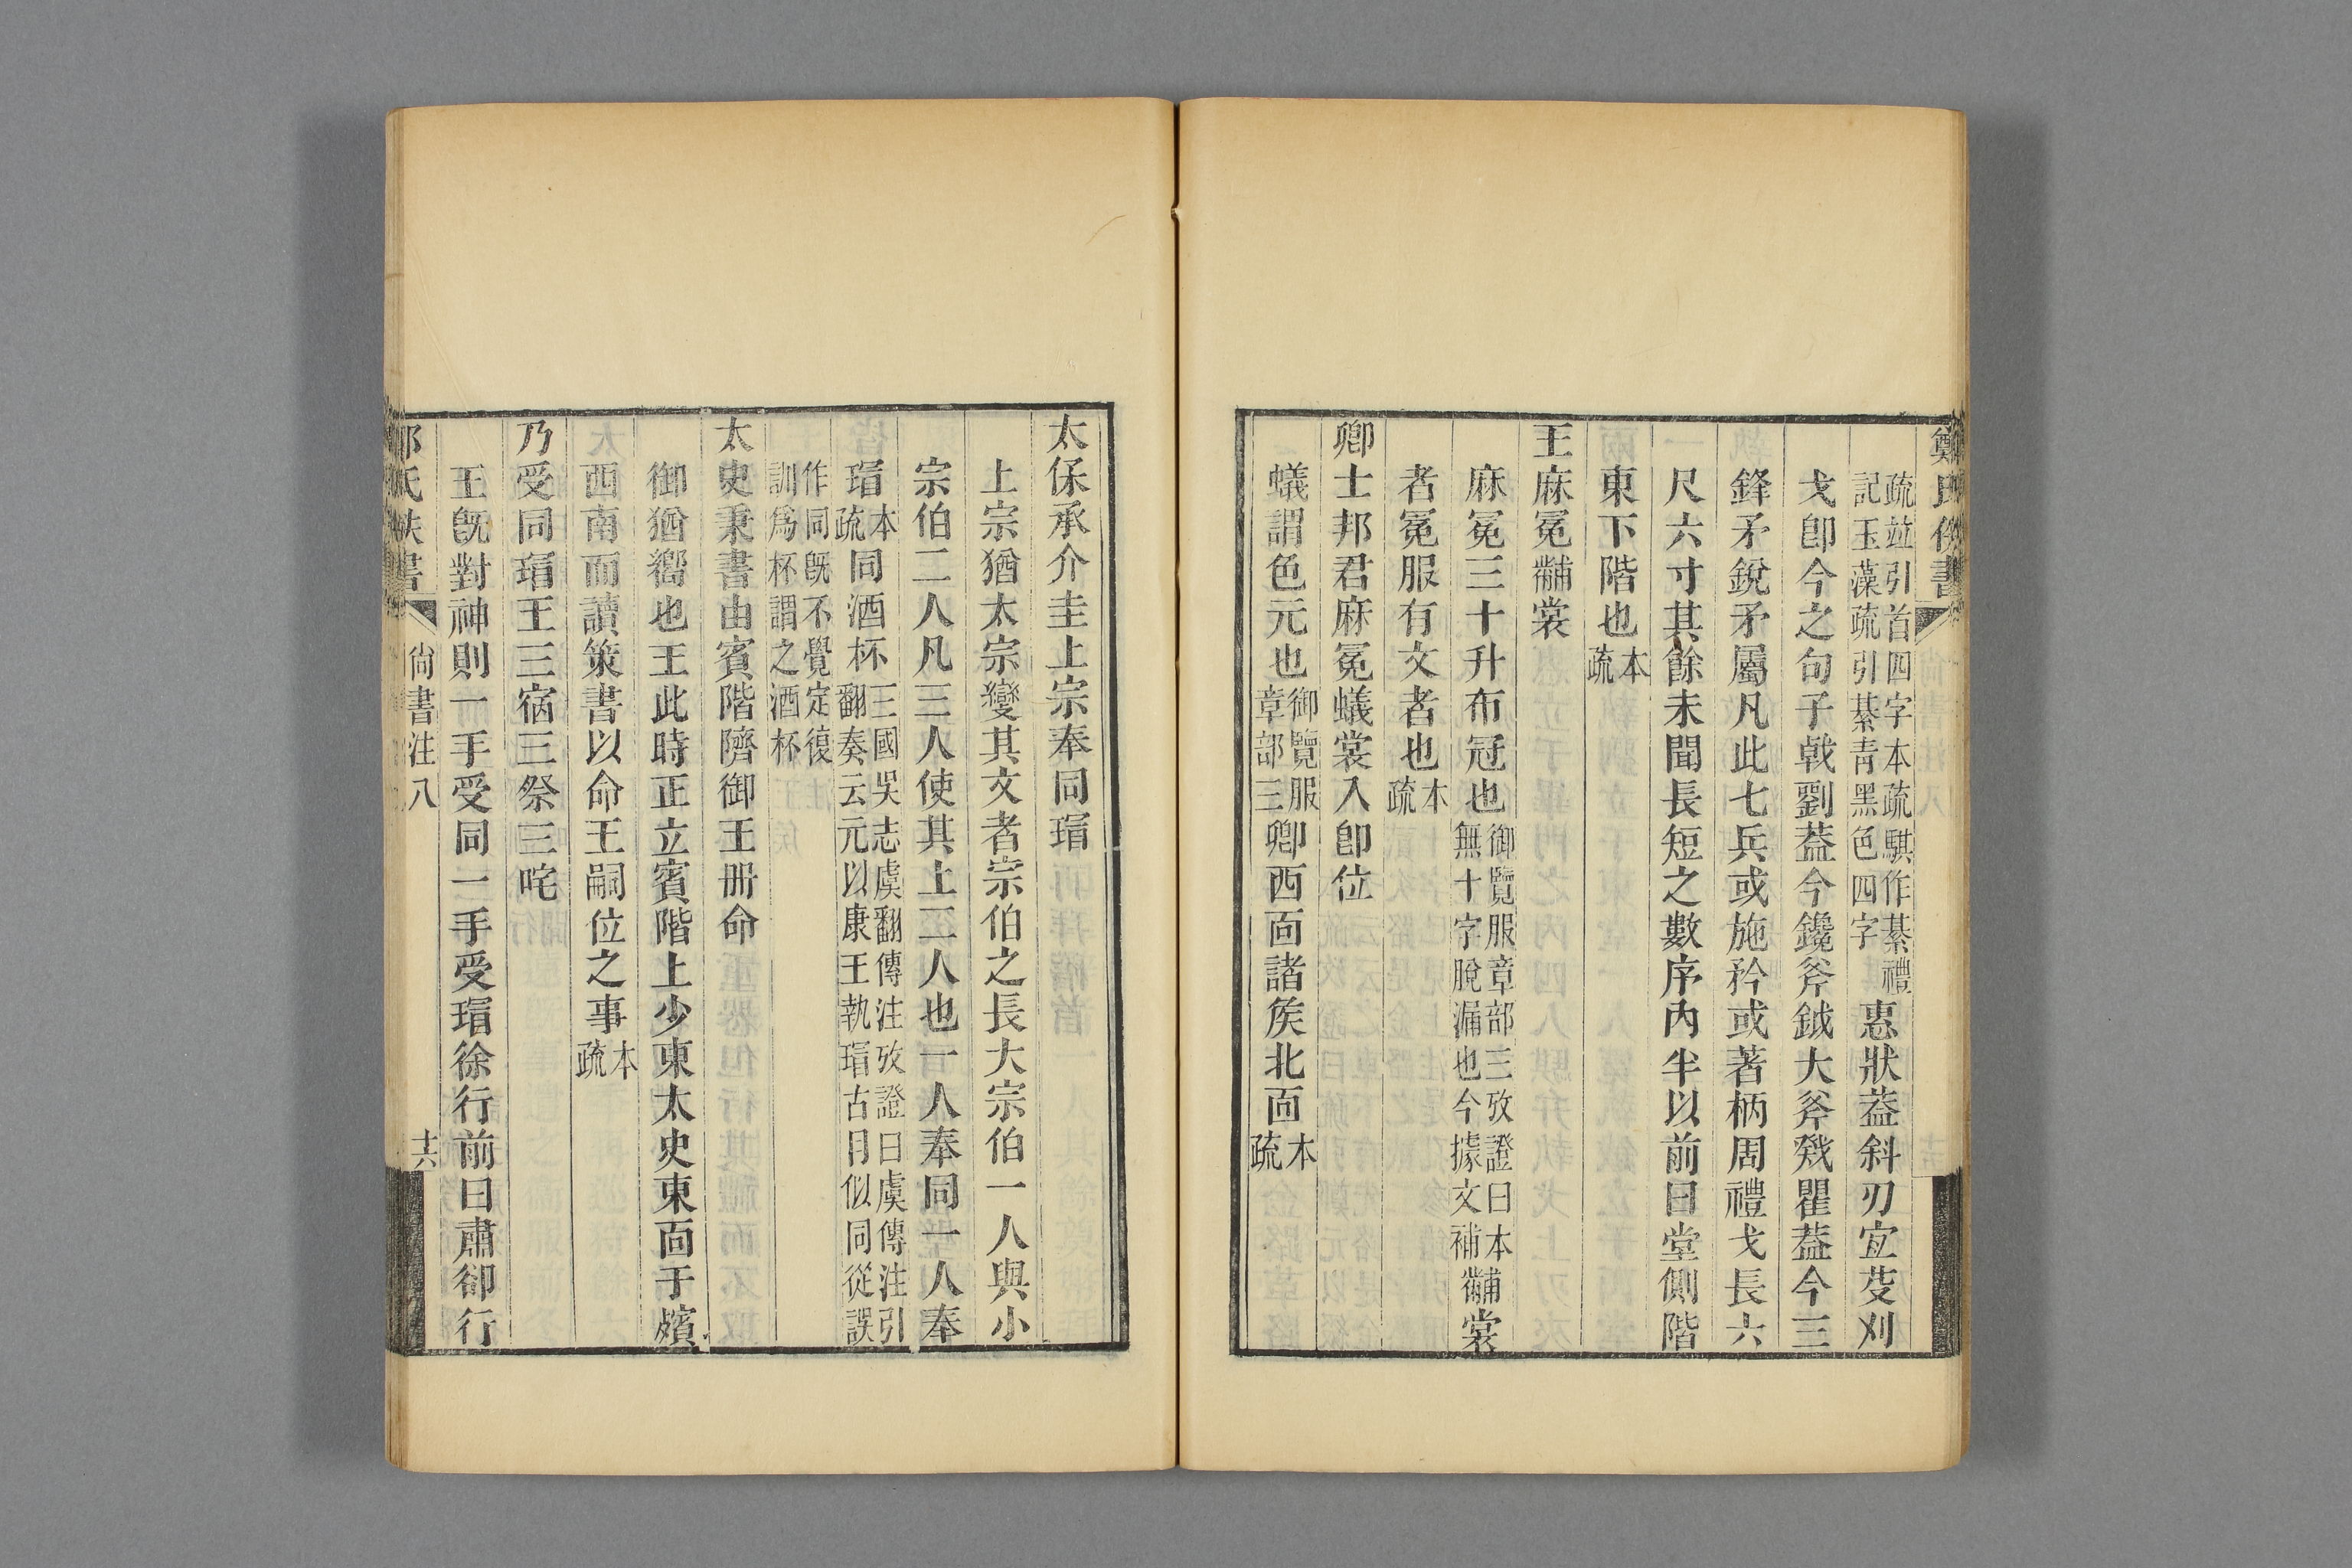 鄭氏佚書
疏竝引首四字本疏騏作綦禮
記玉藻疏引綦靑黑色四字
惠狀葢斜刃宜芟刈
戈卽今之句子戟劉葢今鑱斧鉞大斧戣瞿葢今三
鋒矛銳矛屬凡此七兵或施矜或著柄周禮戈長六
尺六寸其餘未聞長短之數序內半以前曰堂側階
東下階也本疏
王麻冕黼裳
麻冕三十升布冠也御覽服章部三攷證曰本
無十字脫漏也今據文補黼裳
者冕服有文者也本疏
卿士邦君麻冕蟻裳入卽位
蟻謂色元也御覽服
章部三卿西面諸矦北面本疏
太保承介圭上宗奉同瑁
上宗猶太宗變其文者宗伯之長大宗伯一人與小
宗伯二人凡三人使其上二人也一人奉同一人奉
瑁本疏同酒杯三國吳志虞翻傳注攷證曰虞傳注引
翻奏云元以康王執瑁古冃似同從誤
作同旣不覺定復
訓爲杯謂之酒杯
太史秉書由賓階隮御王册命
御猶嚮也王此時正立賓階上少東太史東面于殯
西南而讀策書以命王嗣位之事本疏
乃受同瑁王三宿三祭三咤
王旣對神則一手受同一手受瑁徐行前曰肅卻行
氏佚書
尙書注八
十六